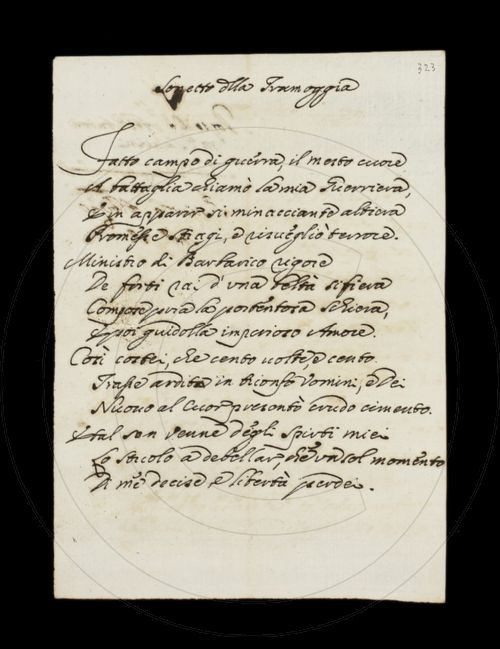 323
Sonetto dlla Tramoggia
Fatto campo di guerra, il mesto cuore
A battaglia chiamò la mia Guerriera,
E in apparir si minacciante altiera
Promesse stragi, e risvegliò terrore.
Ministro di Barbarico rigore
De forti rai d'una beltà si fiera
Compose pria la portentosa schiera,
E poi guidolla imperioso Amore.
Così costei, che cento volte, e cento
Trasse ardita in trionfo Uomini, e Dei
Nuovo al Cuor presentò crudo cimento.
E tal son venne degli Spirti miei
Lo stuolo a debellar, che un sol momento
Di me decise e libertà perdei.